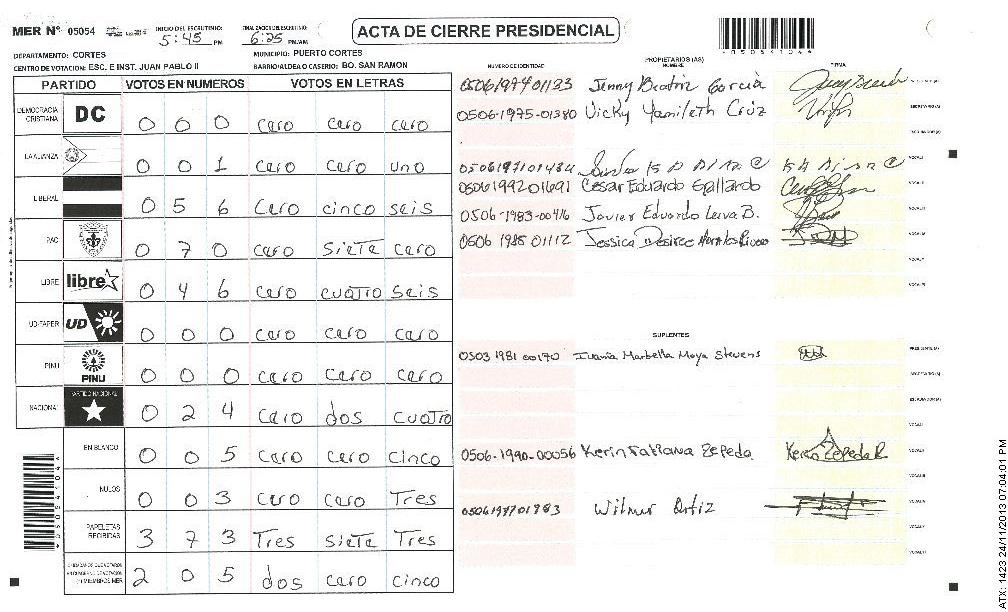 MER Nº 05054 INICIO DEL ESCRUTINIO: 5:45 PM FINALIZACION DEL ESCRUTINIO: 6:25 PM/AM
ACTA DE CIERRE PRESIDENCIAL
DEPARTAMENTO: CORTES MUNICIPIO: PUERTO CORTES
CENTRO DE VOTACION: ESC. E INST. JUAN PABLO II BARRIO/ALDEA O CASERIO: BO. SAN RAMON
PARTIDO VOTOS EN NUMEROS VOTOS EN LETRAS
DEMOCRACIA CRISTIANA DC 0 0 0 cero cero cero
LA ALIANZA 0 0 1 cero cero uno
LIBERAL 0 5 6 cero cinco seis
PAC 0 7 0 cero siete cero
LIBRE libre 0 4 6 cero cuatro seis
UD-FAPER UD 0 0 0 cero cero cero
PINU PINU 0 0 0 cero cero cero
NACIONAL PARTIDO NACIONAL 0 2 4 cero dos cuatro
EN BLANCO 0 0 5 cero cero cinco
NULOS 0 0 3 cero cero Tres
PAPELETAS RECIBIDAS 3 7 3 Tres siete Tres
2 0 5 dos cero cinco
PROPIETARIOS (AS)
NUMERO DE IDENTIDAD NOMBRE FIRMA
0506197401133 Jenny Beatriz Garcia
0506-1975-01380 Vicky Yamileth Cruz
0506197101434
0506199201691 Cesar Eduardo Gallardo
0506-1983-00416 Javier Eduardo Leiva B.
0506 1988 01112 Jessica Desiree
SUPLENTES
0503 1981 00170 Ivania Marbella Moya Stevens
0506-1990-00056 Kerin Tatiana Zepeda Kerin Zepeda R
0506197701983 Wilmer Ortiz
ATX: 1423 24/11/2013 07:04:01 PM